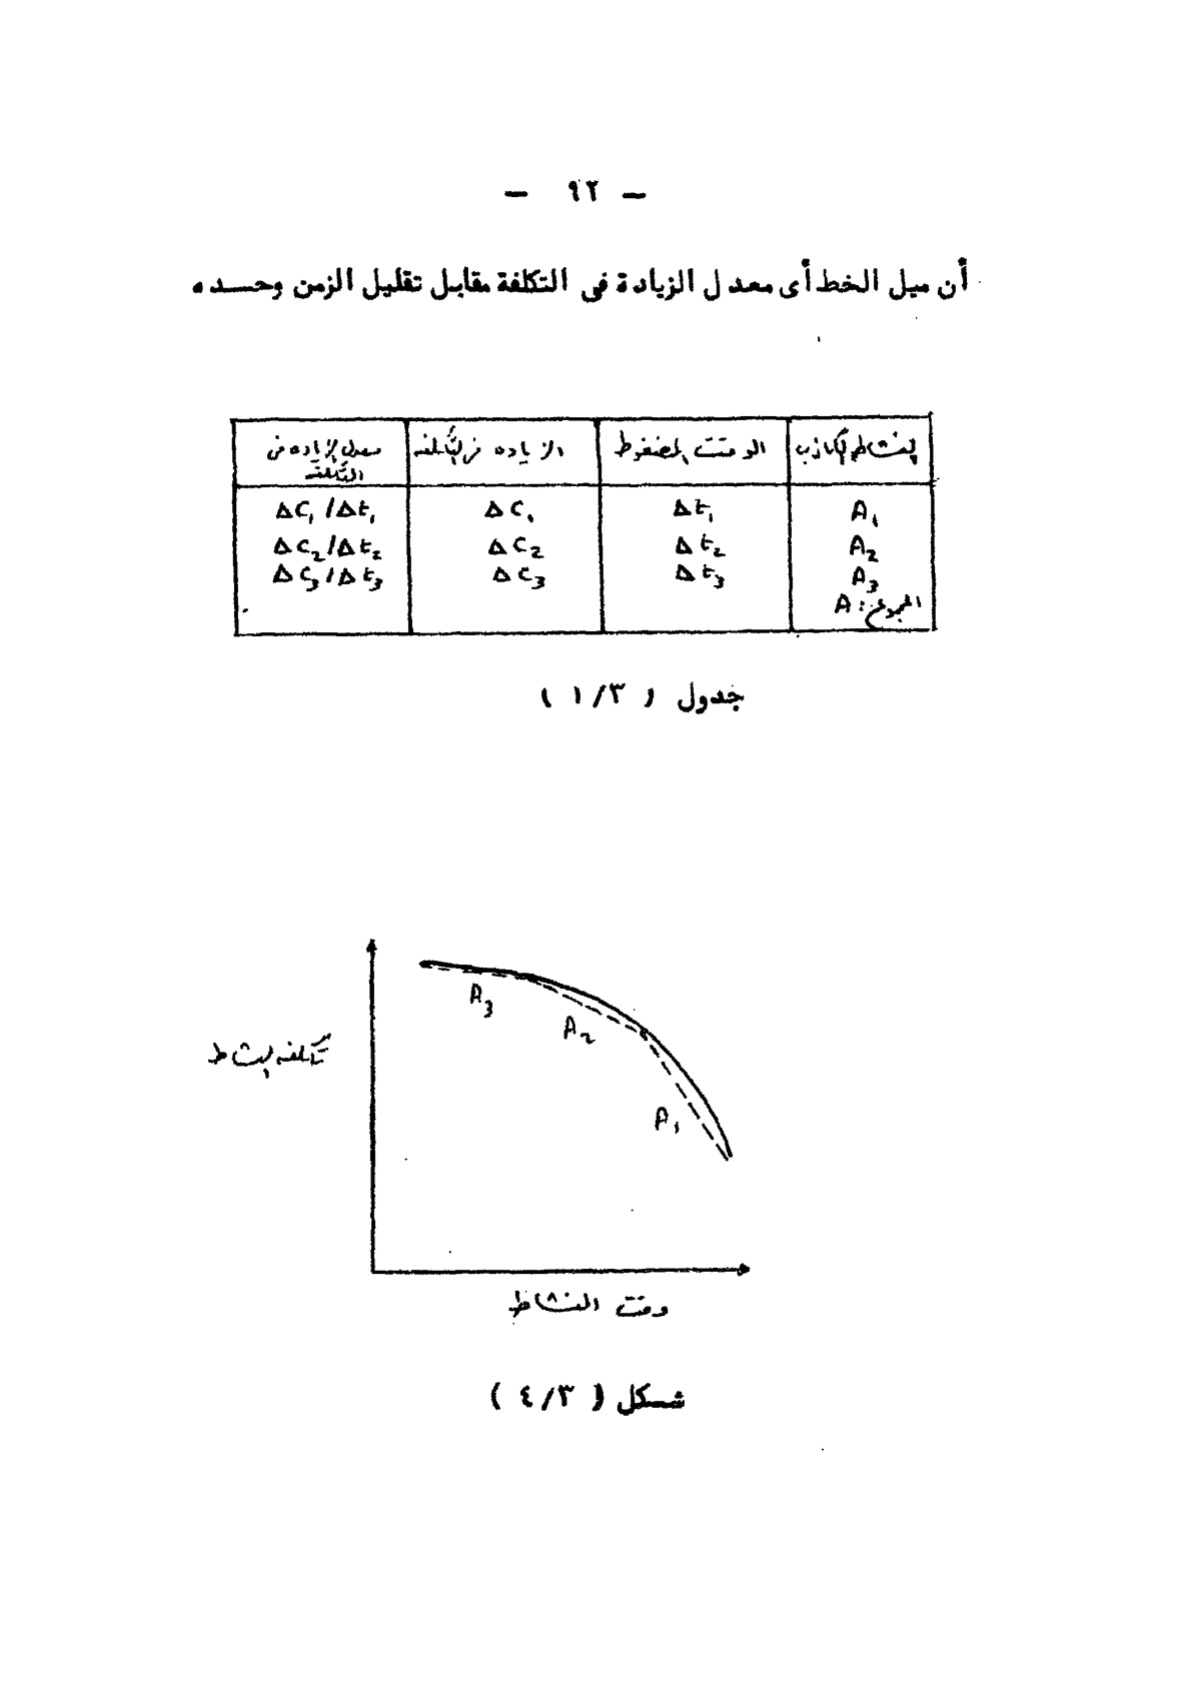 — ٩٢ —
أن ميل الخط أى معدل الزيادة فى التكلفة مقابل تقليل الزمن وحسده
النشاط الكاذب الوقت المضغوط الزياده فى التكلفه معدل الزياده فى التكلفه
A₁ Δt₁ ΔC₁ ΔC₁/Δt₁
A₂ Δt₂ ΔC₂ ΔC₂/Δt₂
A₃ Δt₃ ΔC₃ ΔC₃/Δt₃
المجموع: A
جدول ( ١/٣ )
A₃
A₂
تكلفه النشاط
A₁
وقت النشاط
شكل ( ٤/٣ )